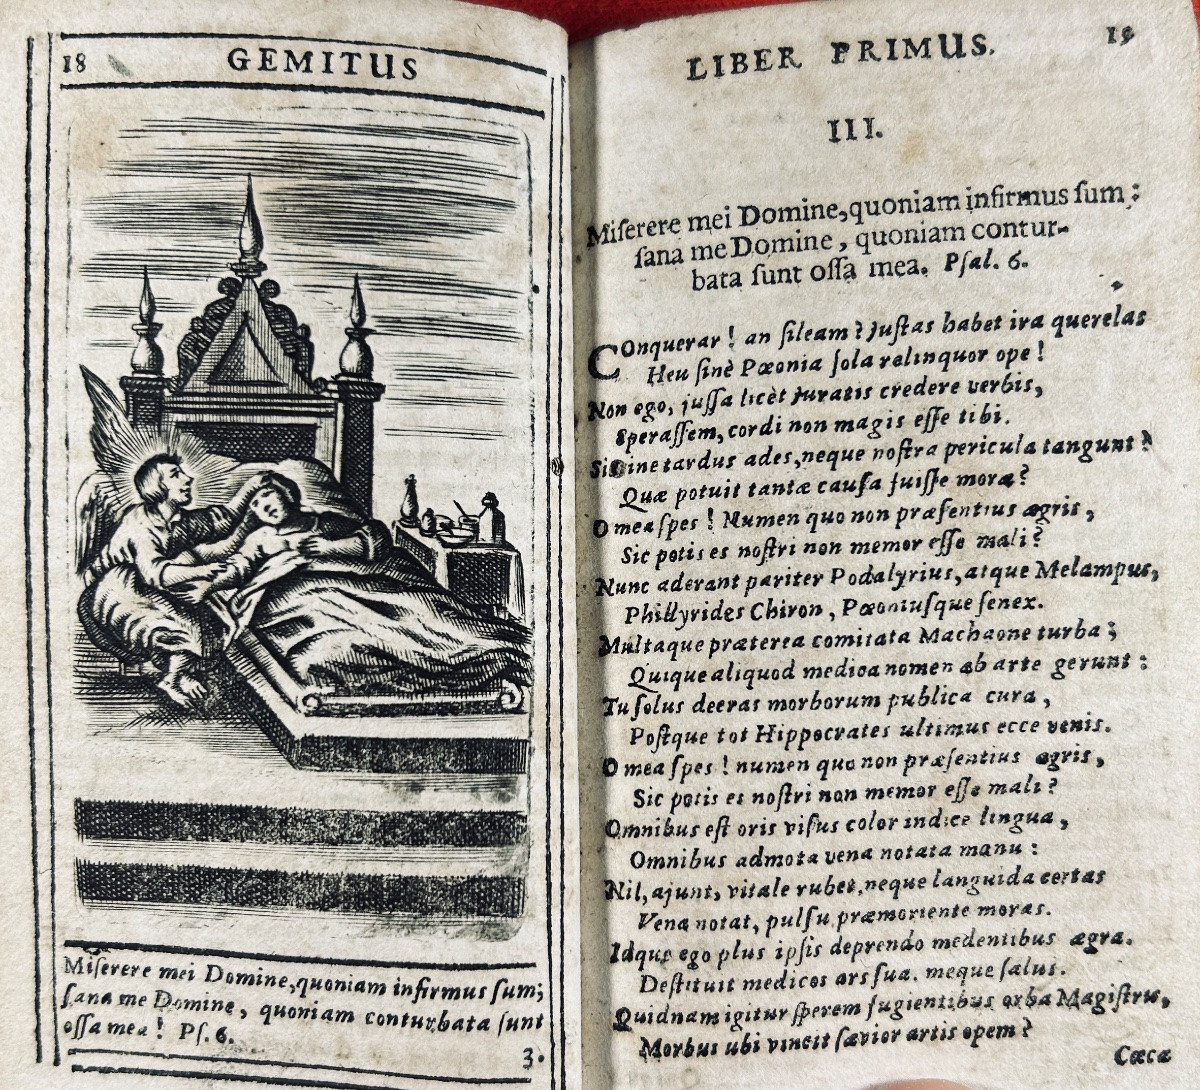 18 GEMITUS
Miſerere mei Domine, quoniam infirmus ſum;
ſana me Domine, quoniam conturbata ſunt
oſſa mea! Pſ. 6.
3.
LIBER PRIMUS. 19
III.
Miſerere mei Domine, quoniam infirmus ſum:
ſana me Domine, quoniam contur-
bata ſunt oſſa mea. Pſal. 6.
COnquerar! an ſileam? juſtas habet ira querelas
Heu ſinè Pæonia ſola relinquor ope!
Non ego, juſſa licèt juratis credere verbis,
Speraſſem, cordi non magis eſſe tibi.
Siccine tardus ades, neque noſtra pericula tangunt?
Quæ potuit tantæ cauſa fuiſſe moræ?
O mea ſpes! Numen quo non præſentius ægris,
Sic potis es noſtri non memor eſſe mali?
Nunc aderant pariter Podalyrius, atque Melampus,
Phillyrides Chiron, Pæoniuſque ſenex.
Multaque præterea comitata Machaone turba;
Quique aliquod medica nomen ab arte gerunt:
Tu ſolus deeras morborum publica cura,
Poſtque tot Hippocrates ultimus ecce venis.
O mea ſpes! numen quo non præſentius ægris,
Sic potis es noſtri non memor eſſe mali?
Omnibus eſt oris viſus color indice lingua,
Omnibus admota vena notata manu:
Nil, ajunt, vitale rubet, neque languida certas
Vena notat, pulſu præmoriente moras.
Idque ego plus ipſis deprendo medentibus ægra.
Deſtituit medicos ars ſua. meque ſalus.
Quidnam igitur ſperem fugientibus orba Magiſtris,
Morbus ubi vincit ſævior artis opem?
Cæcæ